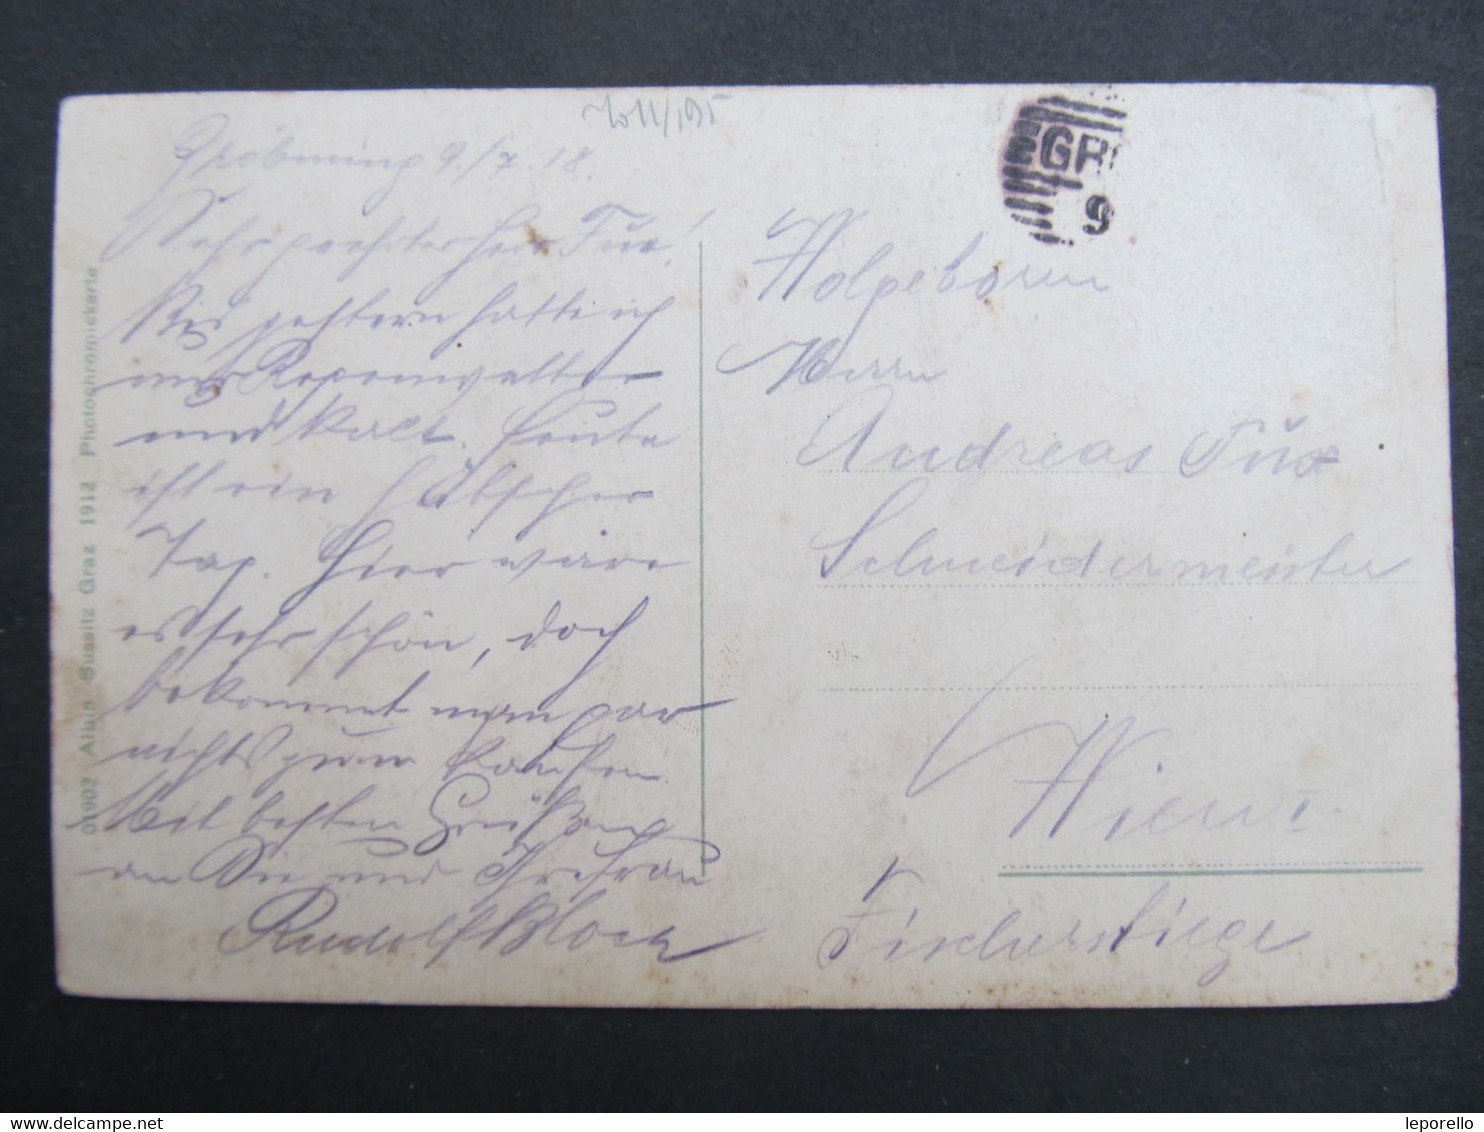 Gröbming 9./7. 18.
Sehr geehrter Herr Fux!
Bis gestern hatte ich
nur Regenwetter
und kalt. Heute
ist ein hübscher
Tag. Hier wäre
es sehr schön, doch
bekommt man gar
nichts zum kaufen.
Mit besten Grüßen
an Sie und Ihre Frau
Rudolf Block
01902 Alwin Sussitz Graz 1912 Photochromiekarte
GR
9
Wolgeboren
Herrn
Andreas Fux
Schneidermeister
Wien I
Fischerstiege
leporello